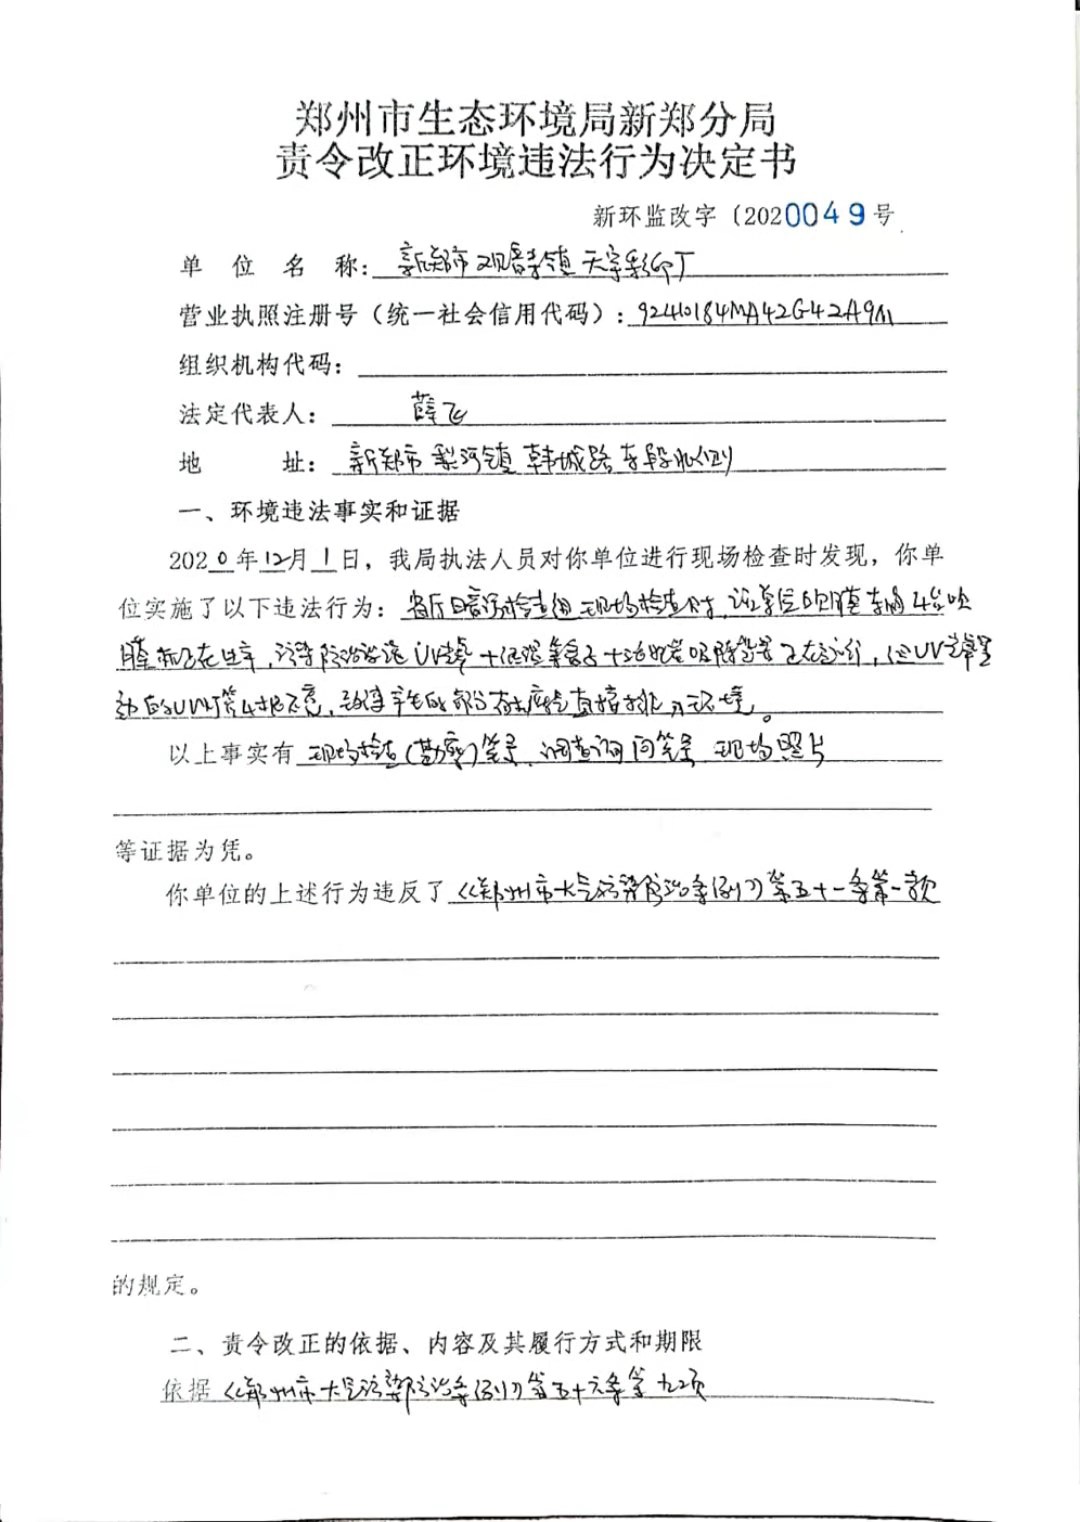 郑州市生态环境局新郑分局
责令改正环境违法行为决定书
新环监改字〔2020049号
单位名称：新郑市观音寺镇天宇彩印厂
营业执照注册号（统一社会信用代码）：92410184MA42G42A9M
组织机构代码：
法定代表人：薛飞
地址：新郑市梨河镇韩城路东段北侧
一、环境违法事实和证据
2020年12月1日，我局执法人员对你单位进行现场检查时发现，你单
位实施了以下违法行为：省厅暗访检查组现场检查时，该单位吹膜车间4台吹
膜机正在生产，污染防治设施UV光氧+低温等离子+活性炭吸附装置正在运行，但UV光氧
的UV灯管4根不亮，致使产生的部分有机废气直接排入环境。
以上事实有现场检查（勘察）笔录、调查询问笔录、现场照片
等证据为凭。
你单位的上述行为违反了《郑州市大气污染防治条例》第五十一条第一款
的规定。
二、责令改正的依据、内容及其履行方式和期限
依据《郑州市大气污染防治条例》第五十六条第九项